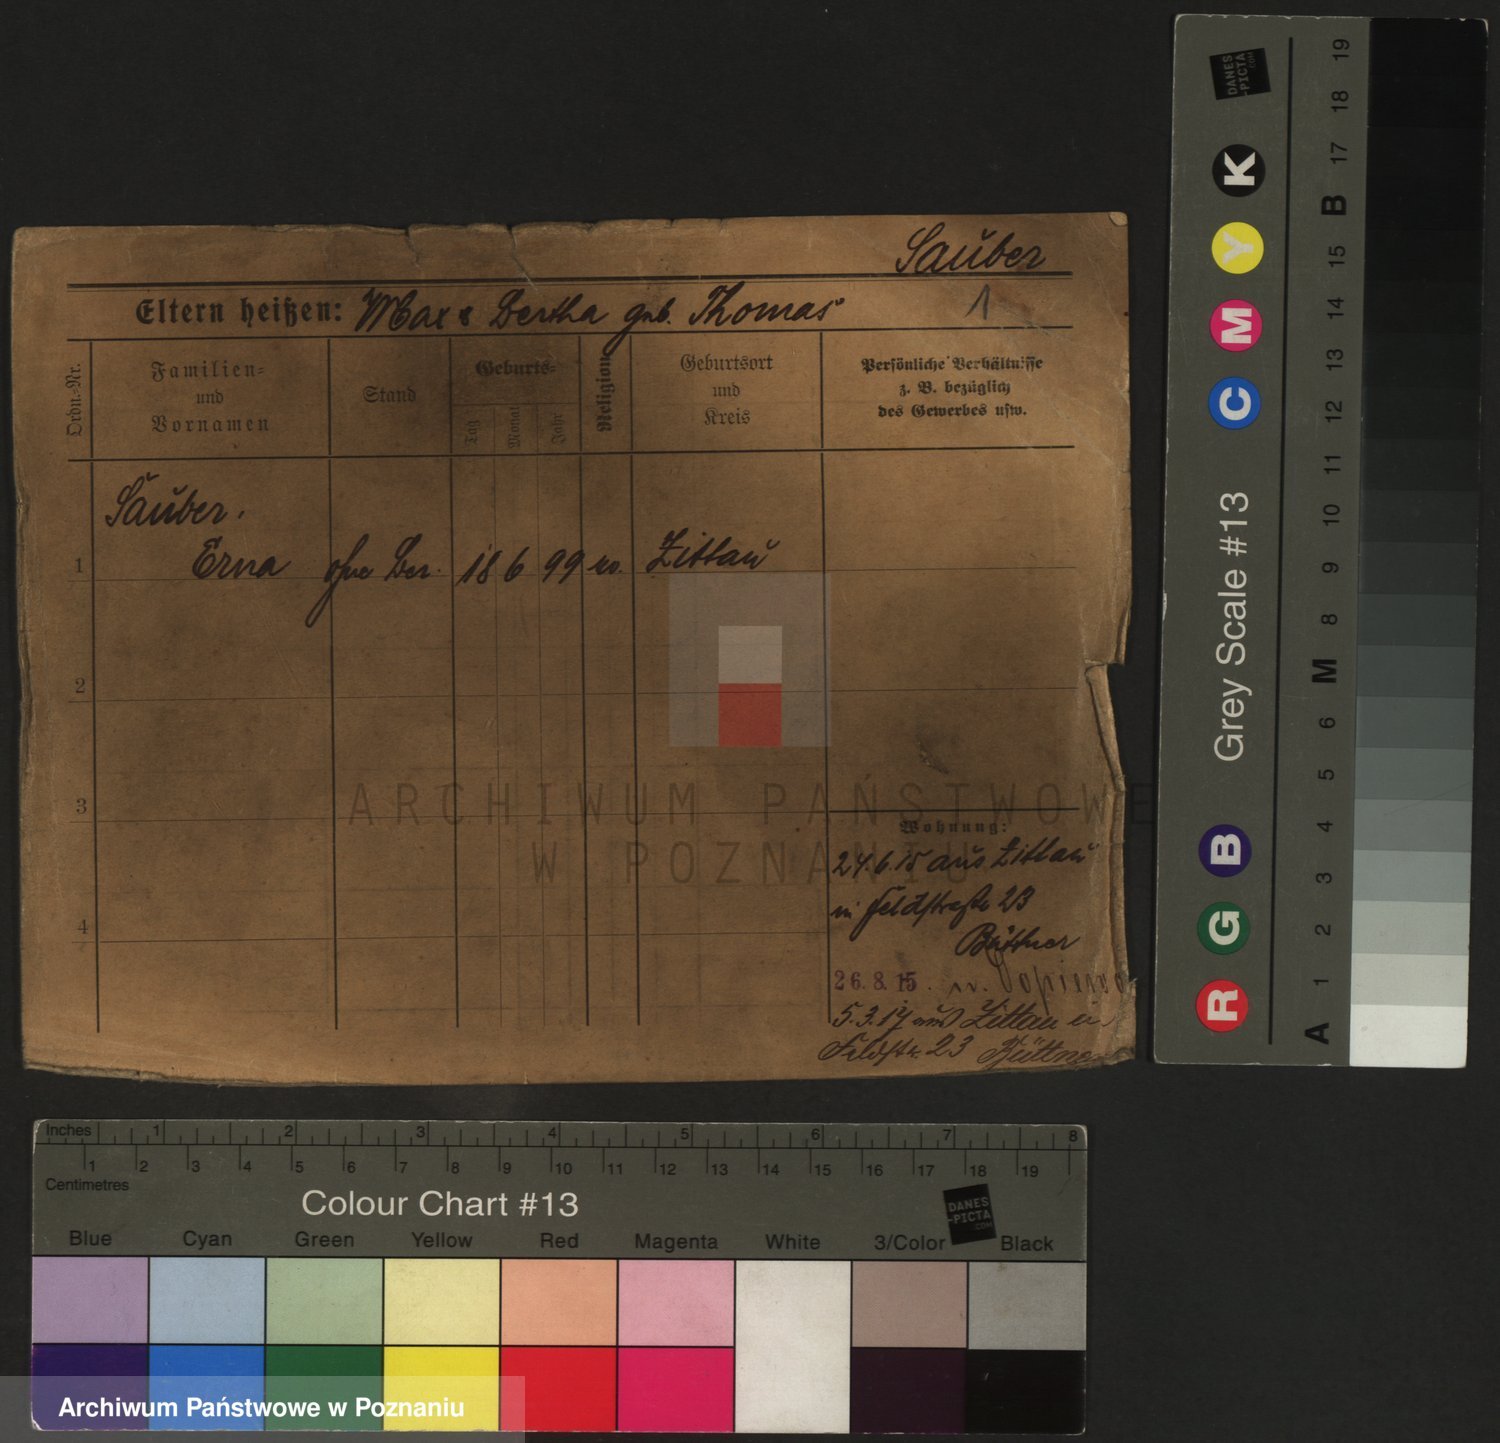 Sauber
Eltern heißen: Max & Bertha geb. Thomas
1
Ordn.-Nr.
Familien-
und
Vornamen
Stand
Geburts-
Tag
Monat
Jahr
Religion
Geburtsort
und
Kreis
Persönliche Verhältnisse
z. B. bezüglich
des Gewerbes usw.
Sauber.
1 Erna ohne Ber. 18 6 99 ev. Zittau
2
3
4
Wohnung:
24.6.15 aus Zittau
in Feldstraße 23
Büttner
26. 8. 15. n.
5.3.17 aus Zittau in
Feldstr. 23 Büttner
ARCHIWUM PAŃSTWOWE
W POZNANIU
DANES
-PICTA
.COM
K
Y
M
C
Grey Scale #13
B
G
R
19
18
17
B
15
14
13
12
11
10
9
8
M
6
5
4
3
2
1
A
Inches 1 2 3 4 5 6 7 8
1 2 3 4 5 6 7 8 9 10 11 12 13 14 15 16 17 18 19
Centimetres
Colour Chart #13
DANES
-PICTA
.COM
Blue Cyan Green Yellow Red Magenta White 3/Color Black
Archiwum Państwowe w Poznaniu